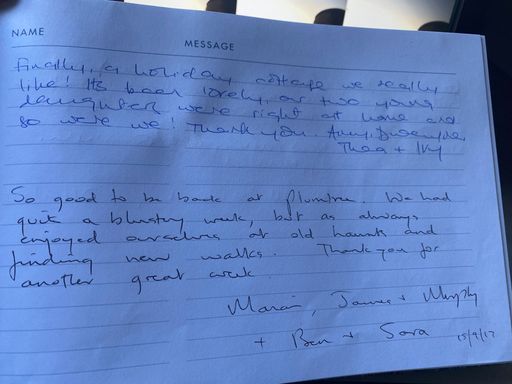 NAME
MESSAGE
Finally, a holiday cottage we really
like! Its been lovely, our two young
daughters were right at home and
so were we! Thank you. Amy,
Thea + Ivy
So good to be back at Plumtree. We had
quite a blustry week, but as always
enjoyed ourselves at old haunts and
finding new walks. Thank you for
another great week.
James + Murphy
+ Ben + Sara 15/9/17